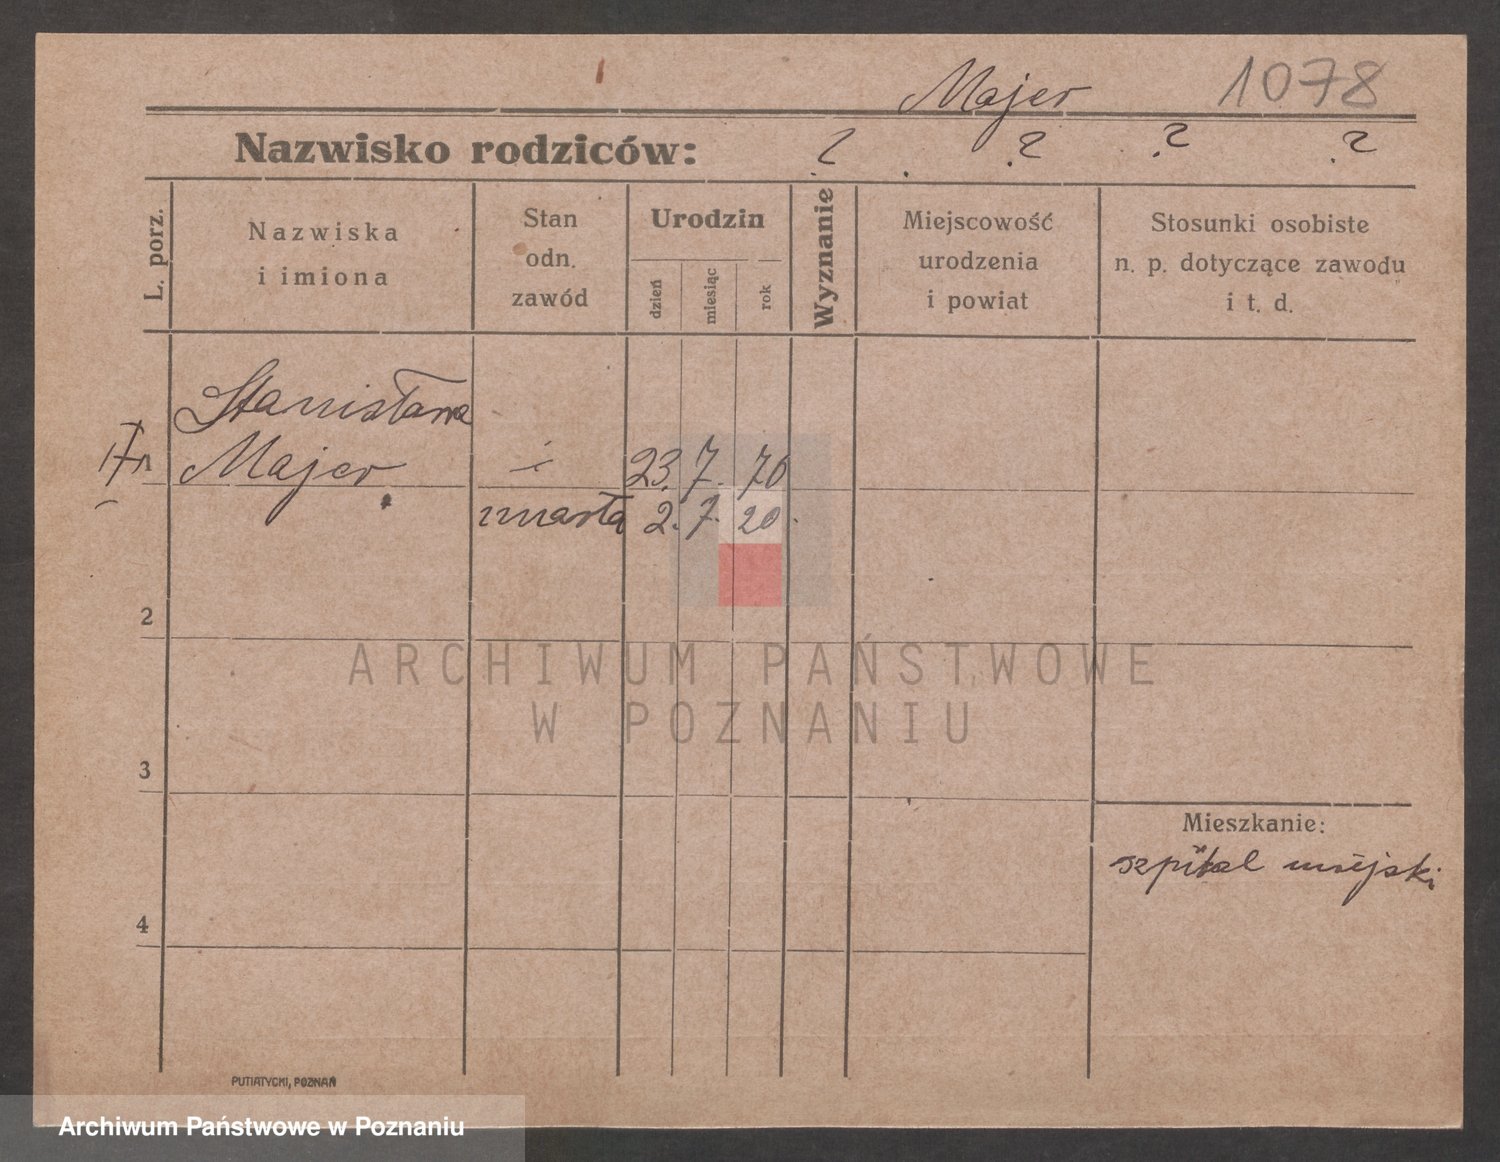 Majer 1078
Nazwisko rodziców: ? ? ? ?
L. porz.
Nazwiska
i imiona
Stan
odn.
zawód
Urodzin
dzień
miesiąc
rok
Wyznanie
Miejscowość
urodzenia
i powiat
Stosunki osobiste
n. p. dotyczące zawodu
i t. d.
Stanisława
Majer 23. 7. 70
umarła 2. 7. 20
2
ARCHIWUM PAŃSTWOWE
W POZNANIU
3
Mieszkanie:
szpital miejski
4
PUTIATYCKI, POZNAŃ
Archiwum Państwowe w Poznaniu